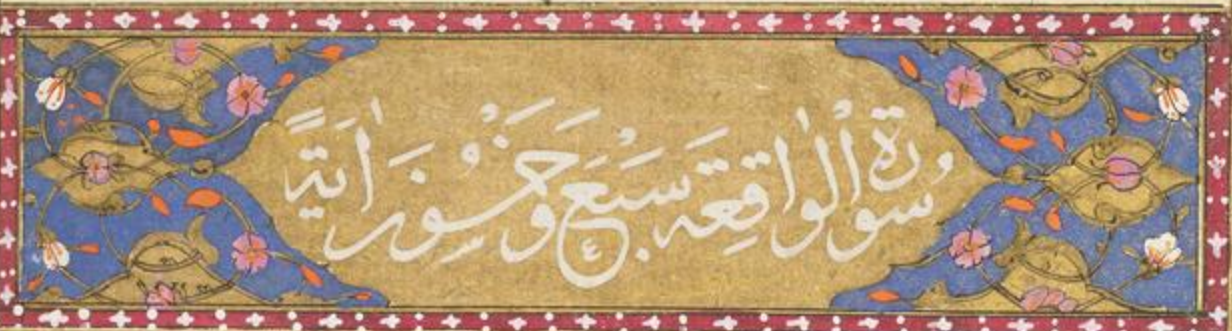 سُورَةُ الْوَاقِعَه سَبْعَ وَخَمْسُونَ اٰيَةً